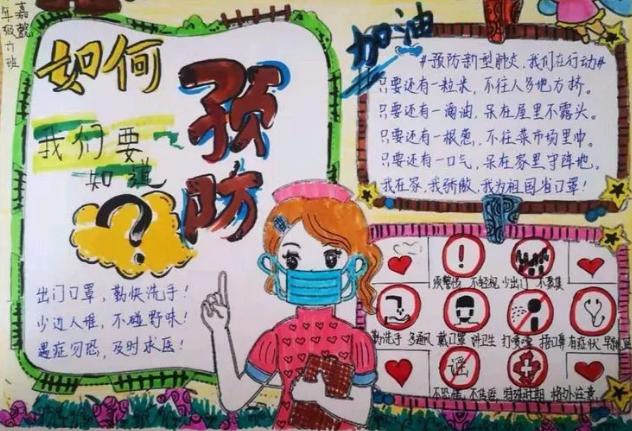 嘉懿
年级
班
如何
预防
我们要
知道
?
出门口罩，勤快洗手！
少进人堆，不碰野味！
遇症勿恐，及时求医！
加油
#预防新型肺炎，我们在行动#
只要还有一粒米，不往人多地方挤。
只要还有一滴油，呆在屋里不露头。
只要还有一根葱，不往菜市场里冲。
只要还有一口气，呆在家里守阵地。
我在家，我骄傲，我为祖国省口罩！
预警信 不轻视 少出门 不聚集
勤洗手 多通风 戴口罩 讲卫生 打喷嚏 捂口罩 有症状 早就医
谣
不恐慌 不造谣 特殊时期 格外注意